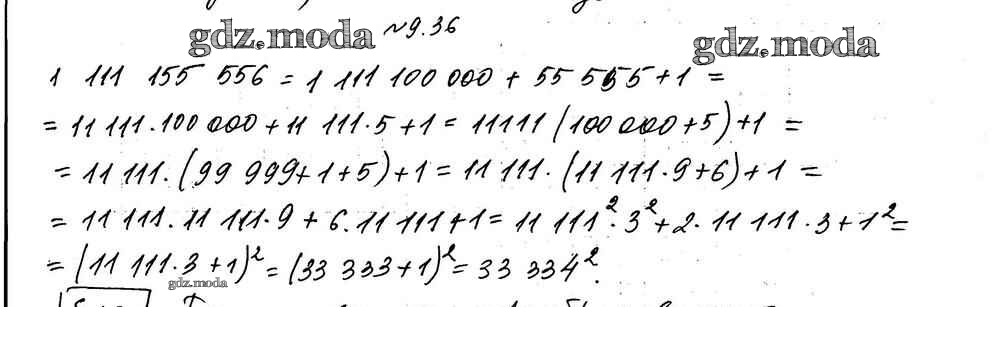 №9.36
gdz.moda gdz.moda
1 111 155 556 = 1 111 100 000 + 55 555 + 1 =
= 11 111 · 100 000 + 11 111 · 5 + 1 = 11111 (100 000 + 5) + 1 =
= 11 111 · (99 999 + 1 + 5) + 1 = 11 111 · (11 111 · 9 + 6) + 1 =
= 11 111 · 11 111 · 9 + 6 · 11 111 + 1 = 11 111² · 3² + 2 · 11 111 · 3 + 1² =
= (11 111 · 3 + 1)² = (33 333 + 1)² = 33 334².
gdz.moda